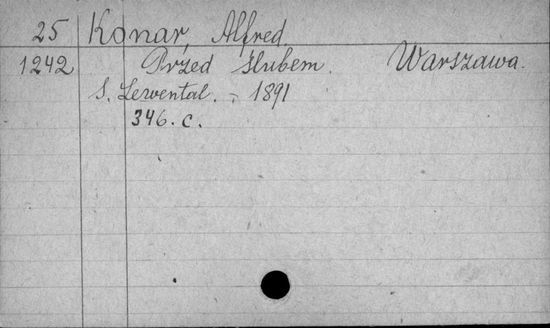 25 Konar, Alfred
1242 Przed ślubem. Warszawa.
S. Lewental. - 1891
346. c.